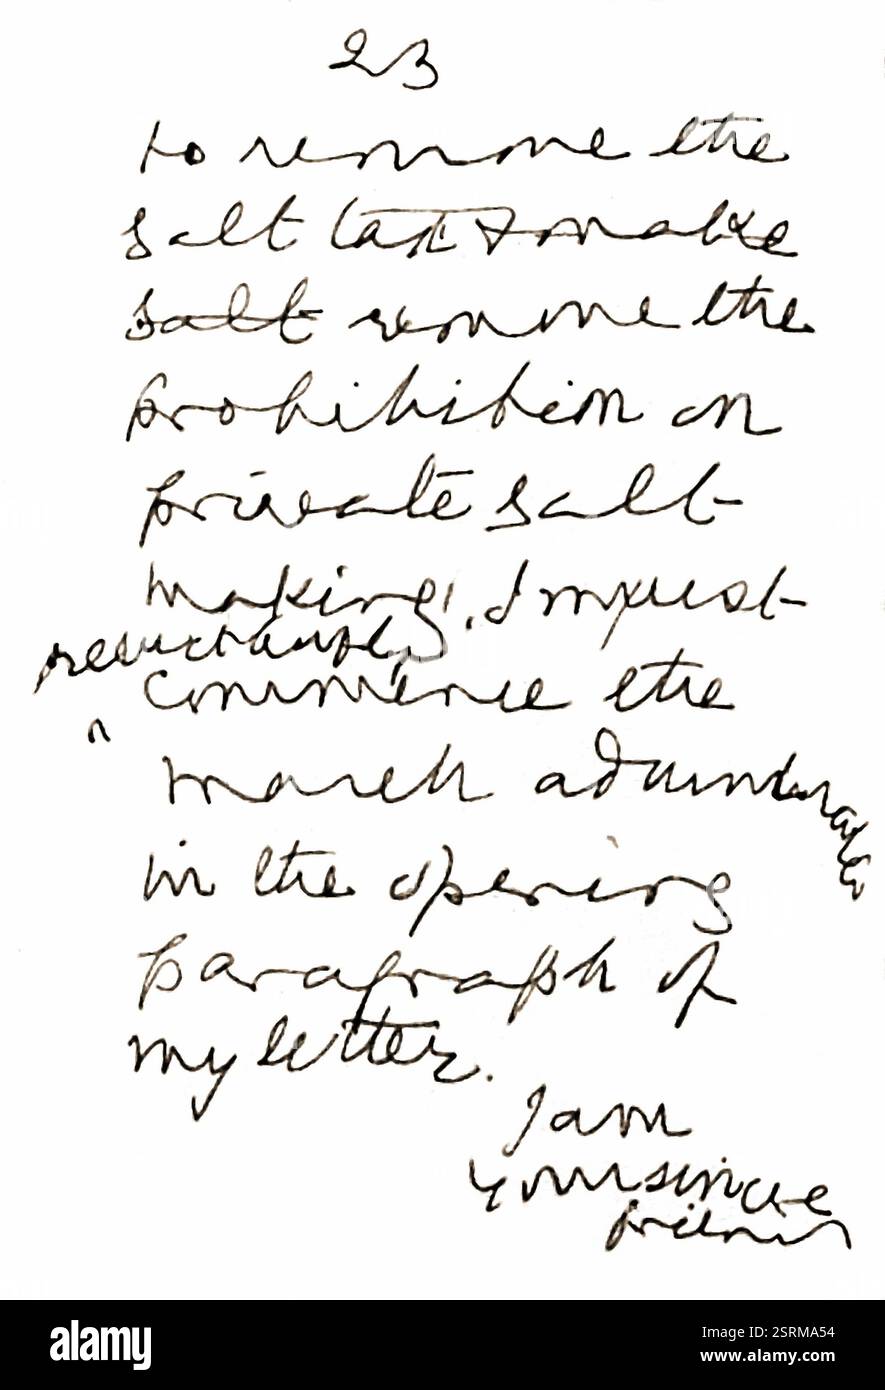 23
to remove the
salt tax & make
salt remove the
prohibition on
private salt
making, I must
reluctantly
commence the
march adumbrated
in the opening
paragraph of
my letter.
I am
Your sincere
friend
alamy
Image ID: 2SRMA54
www.alamy.com